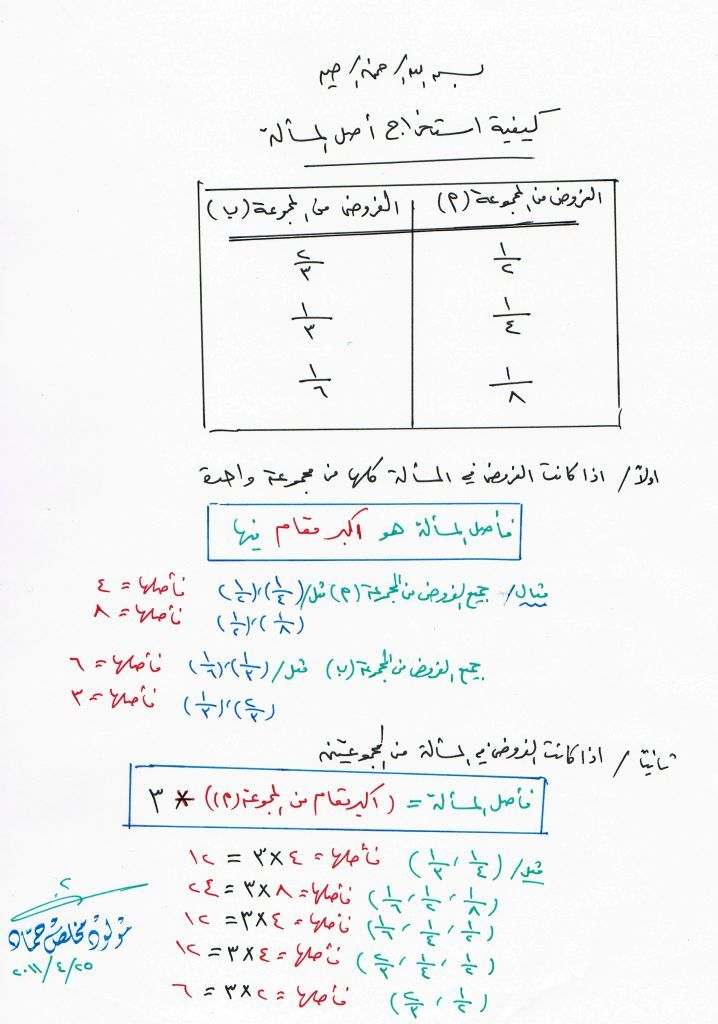 بسم الله الرحمن الرحيم
كيفية استخراج أصل المسألة
الفروض من المجموعة (م) الفروض من المجموعة (ب)
١/٢ ٢/٣
١/٤ ١/٣
١/٨ ١/٦
اولاً / اذا كانت الفروض في المسألة كلها من مجموعة واحدة
فأصل المسألة هو اكبر مقام فيها
مثال / جميع الفروض من المجموعة (م) مثل / (١/٤)، (١/٢) فأصلها = ٤
(١/٨)، (١/٢) فأصلها = ٨
جميع الفروض من المجموعة (ب) مثل / (١/٣)، (١/٦) فأصلها = ٦
(٢/٣)، (١/٣) فأصلها = ٣
ثانياً / اذا كانت الفروض في المسألة من المجموعتين
فأصل المسألة = (اكبر مقام من المجموعة (م)) * ٣
مثل / (١/٤، ١/٣) فأصلها = ٤ × ٣ = ١٢
(١/٨، ١/٢، ١/٦) فأصلها = ٨ × ٣ = ٢٤
(١/٢، ١/٤، ١/٦) فأصلها = ٤ × ٣ = ١٢
(١/٢، ١/٤، ٢/٣) فأصلها = ٤ × ٣ = ١٢
(١/٢، ٢/٣) فأصلها = ٢ × ٣ = ٦
مولود مخلص حماد
٢٠١١/٤/٢٥